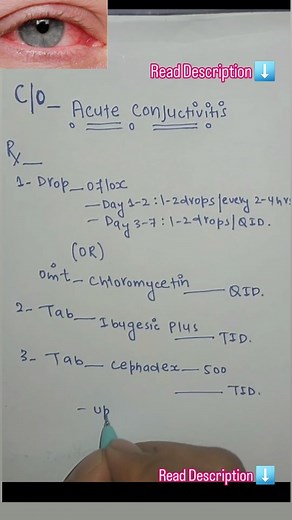 Read Description ⬇️
C/O_ Acute Conjuctivitis
Rx_
1- Drop_ Oflox
— Day 1-2 : 1-2 drops/every 2-4 hr
— Day 3-7 : 1-2 drops/QID.
(OR)
Oint_ Chloromycetin — QID.
2- Tab_ Ibugesic Plus — TID.
3- Tab_ Cephadex_ 500
— TID.
- Up
Read Description ⬇️